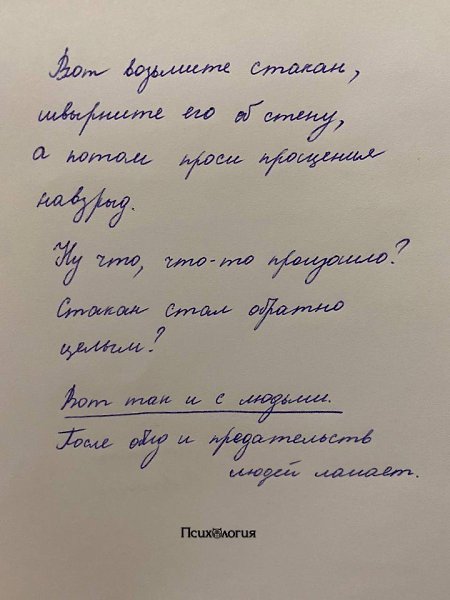 Вот возьмите стакан,
швырните его об стену,
а потом проси прощения
навзрыд.
Ну что, что-то произошло?
Стакан стал обратно
целым?
Вот так и с людьми.
После обид и предательств
людей ломает.
Психология